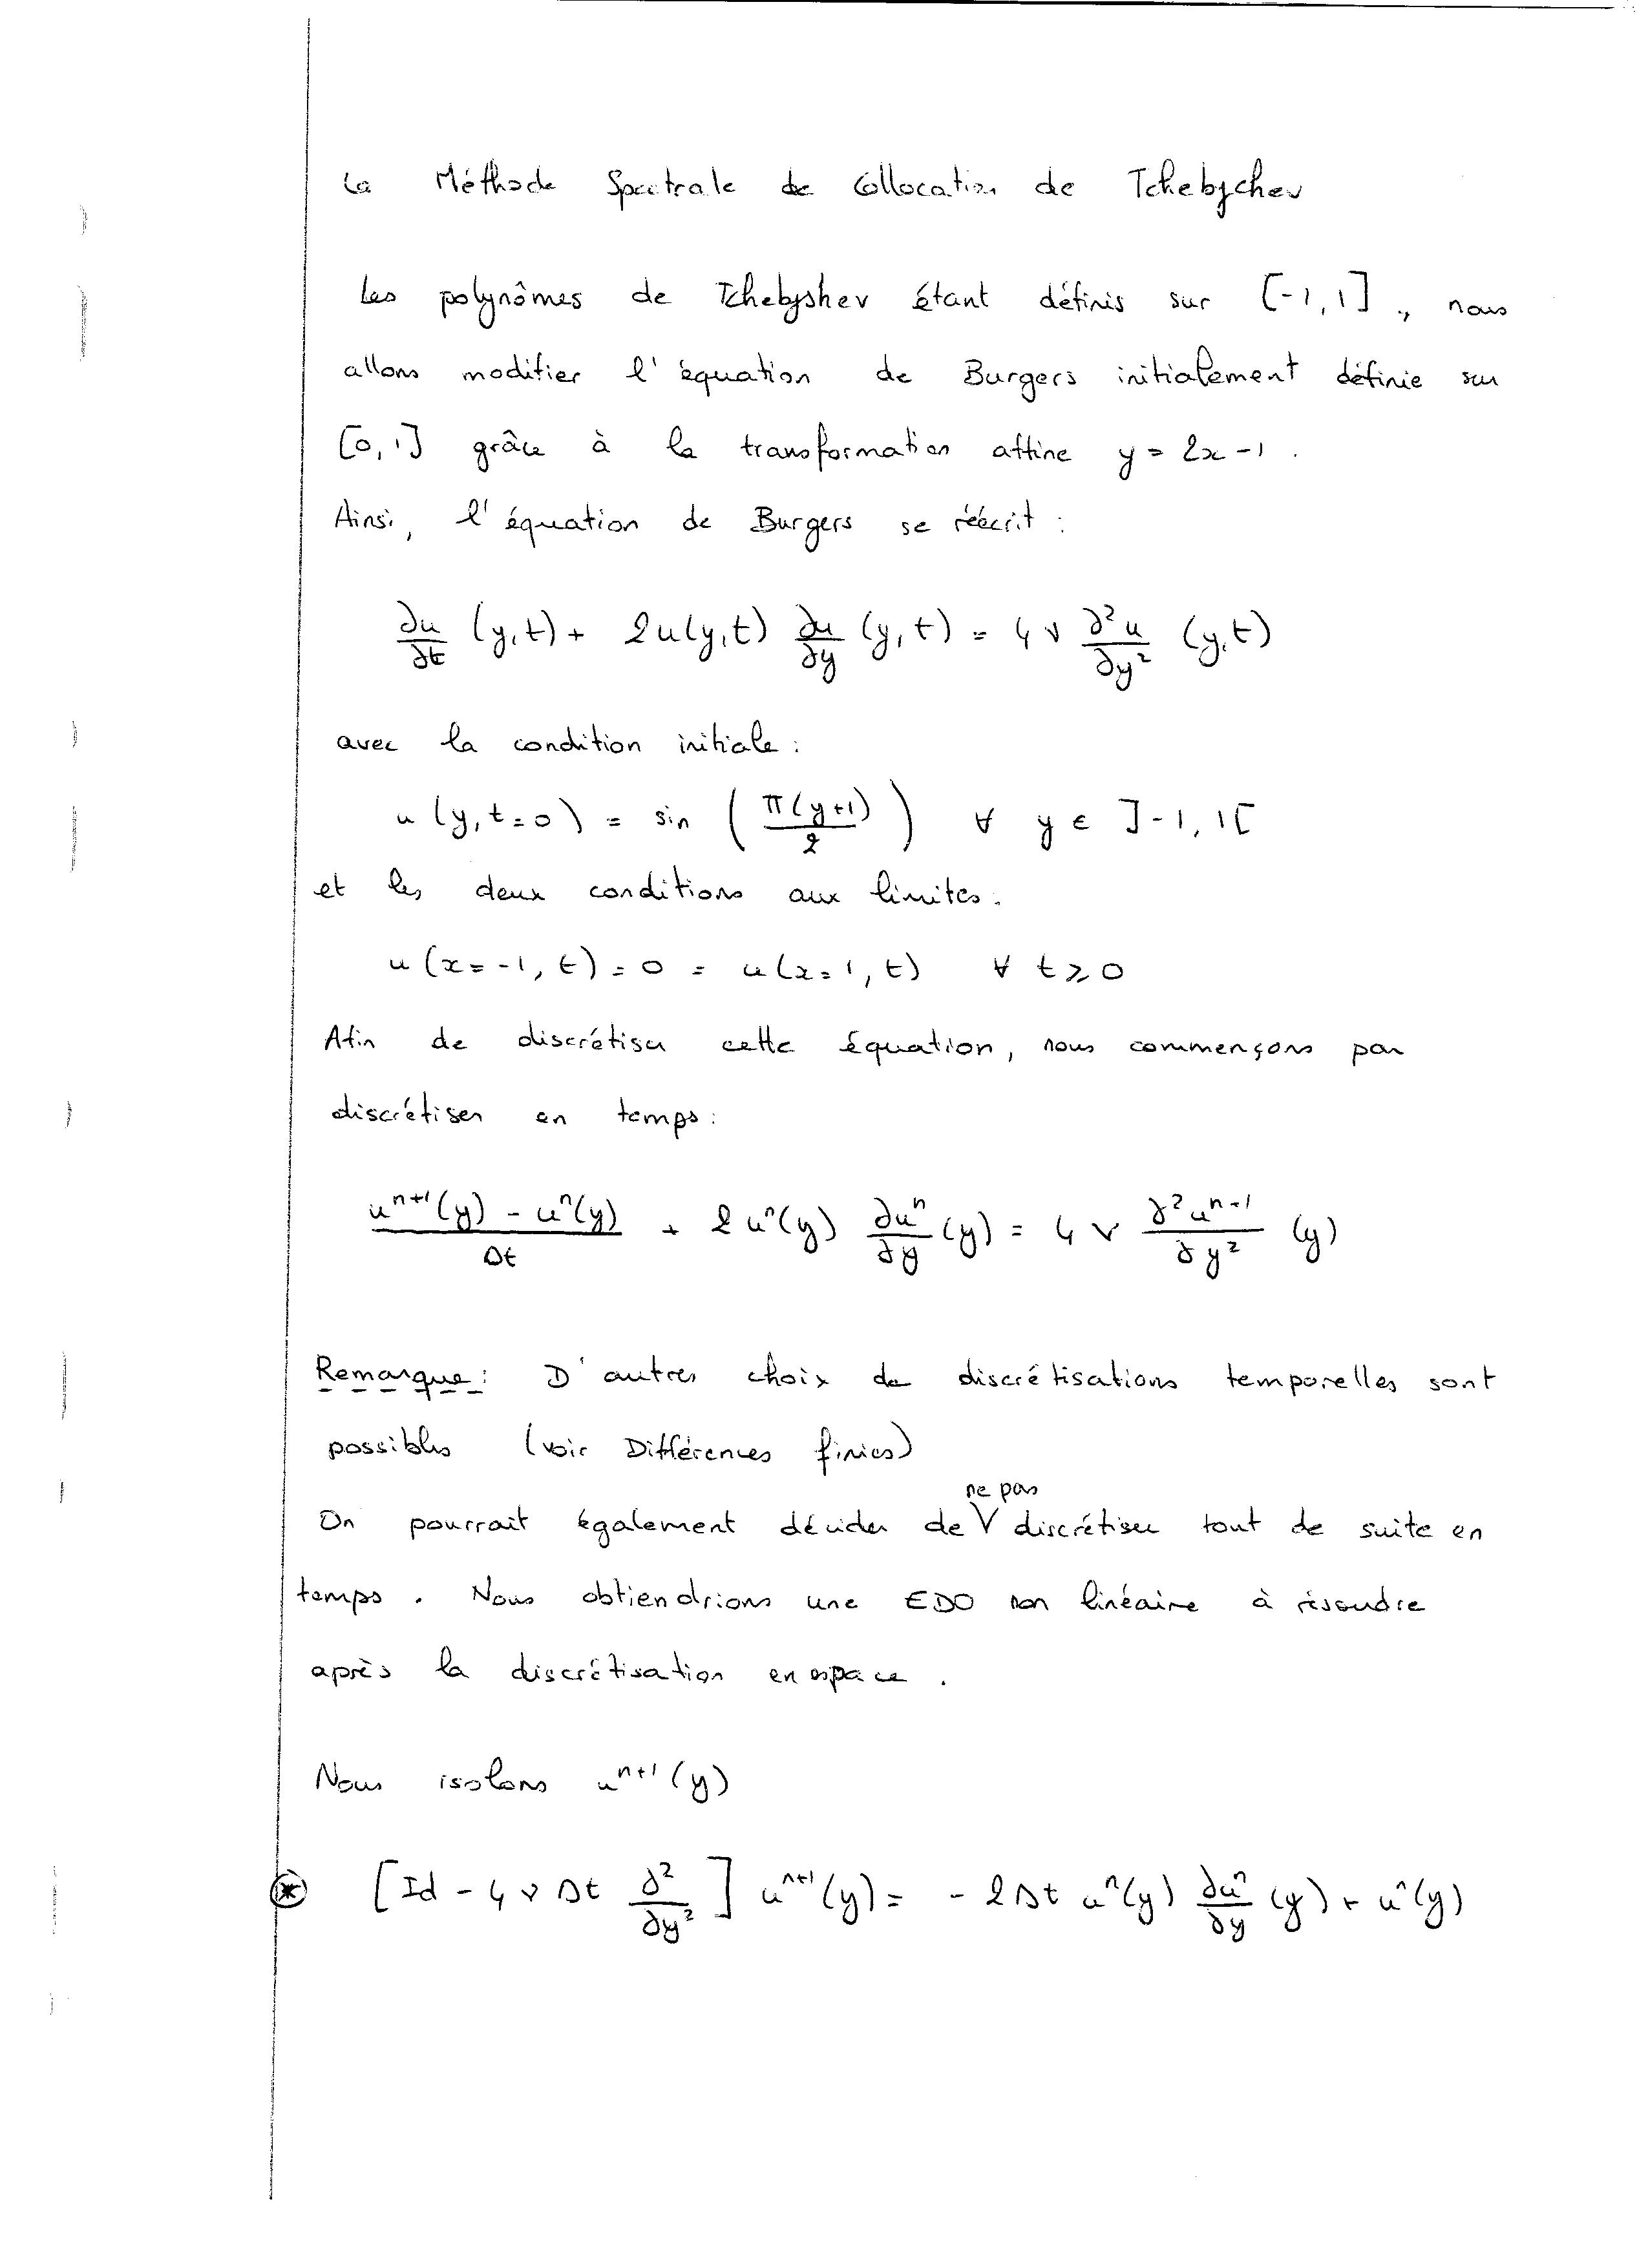 La Méthode Spectrale de Collocation de Tchebychev
Les polynômes de Tchebyshev étant définis sur [-1, 1], nous
allons modifier l'équation de Burgers initialement définie sur
[0, 1] grâce à la transformation affine y = 2x - 1.
Ainsi, l'équation de Burgers se réécrit :
∂u/∂t (y,t) + 2u(y,t) ∂u/∂y (y,t) = 4ν ∂²u/∂y² (y,t)
avec la condition initiale :
u(y, t=0) = sin (π(y+1)/2) ∀ y ∈ ]-1, 1[
et les deux conditions aux limites :
u(x=-1, t) = 0 = u(x=1, t) ∀ t ⩾ 0
Afin de discrétiser cette équation, nous commençons par
discrétiser en temps :
(uⁿ⁺¹(y) - uⁿ(y))/Δt + 2uⁿ(y) ∂uⁿ/∂y (y) = 4ν ∂²uⁿ⁻¹/∂y² (y)
Remarque : D'autres choix de discrétisations temporelles sont
possibles (voir Différences finies)
On pourrait également décider de ne pas discrétiser tout de suite en
temps. Nous obtiendrions une EDO non linéaire à résoudre
après la discrétisation en espace.
Nous isolons uⁿ⁺¹(y)
⊛ [Id - 4νΔt ∂²/∂y²] uⁿ⁺¹(y) = - 2Δt uⁿ(y) ∂uⁿ/∂y (y) + uⁿ(y)